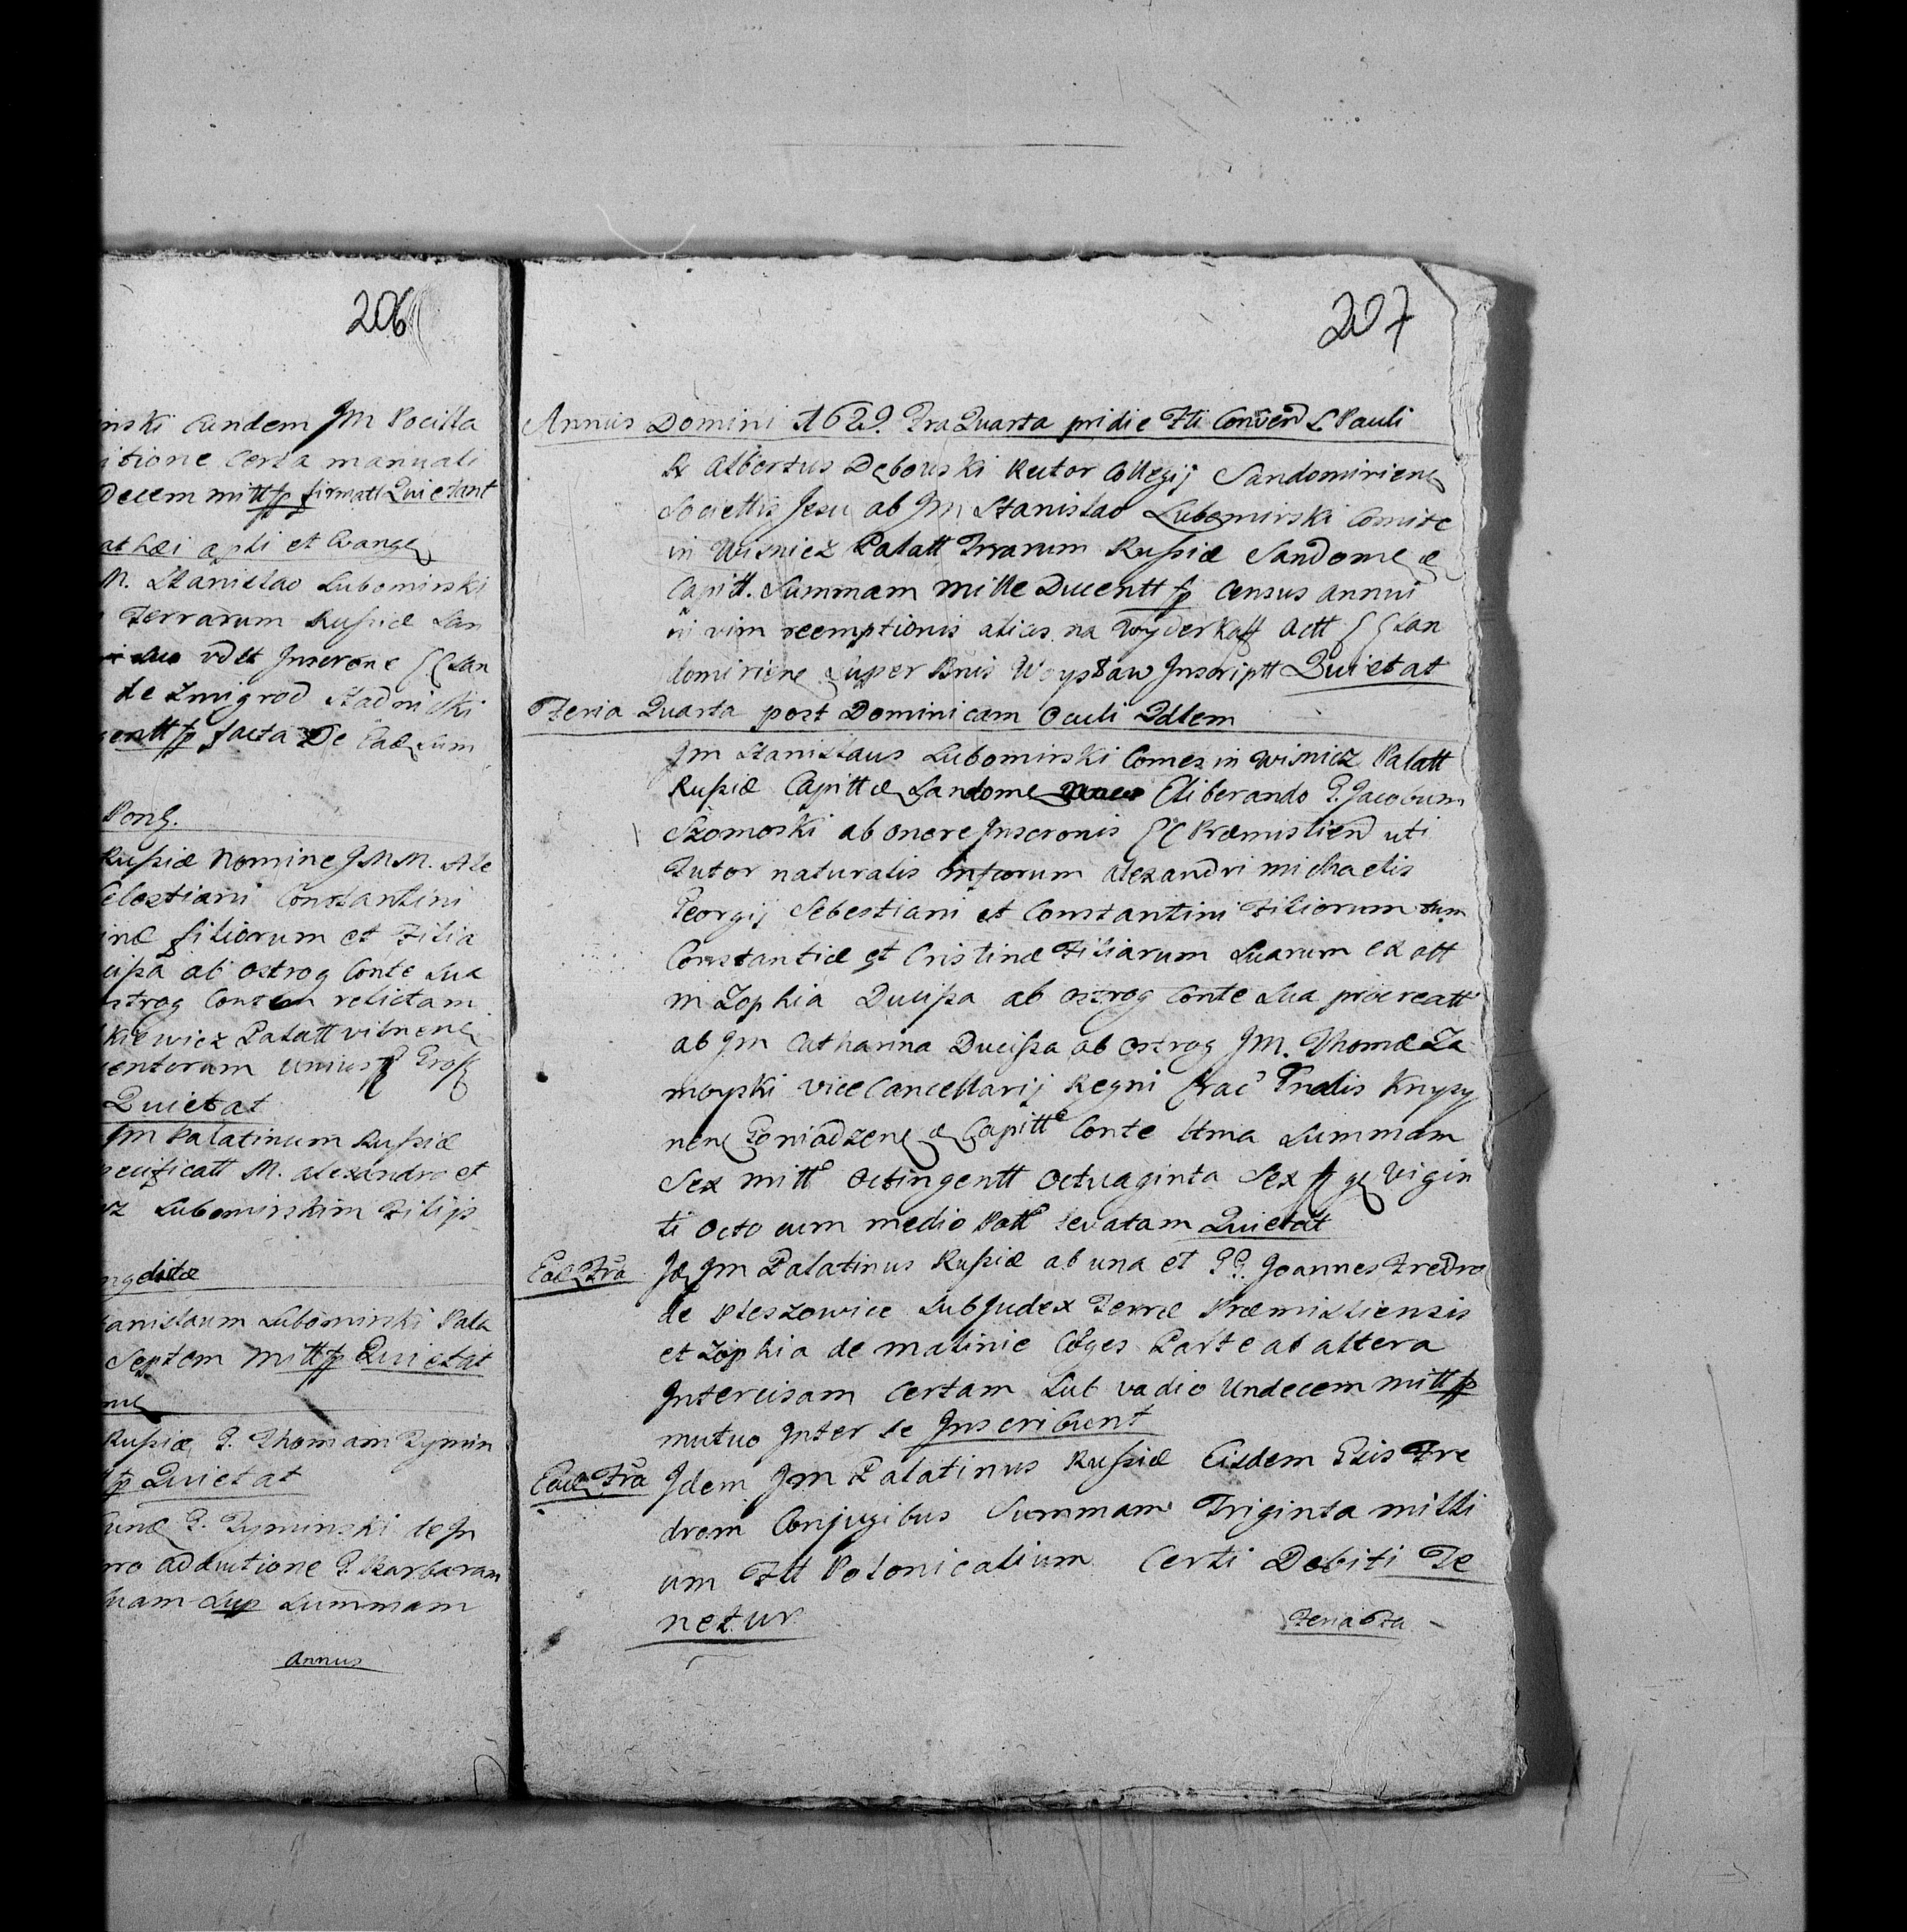 206
nski eandem JM Pocilla
itione certa manuali
Decem mitt fp firmatt Quietant
athæi apli et Evang
M. Stanislao Lubomirski
Terrarum Russiæ San
vdlt Inscrone CC San
de Zmigrod Stadnicki
gentt fp facta De Ead Sum
Pong.
Russiæ Nomine JMM. Ale
ebestiani Constantini
inæ filiorum et Filia
cissa ab ostrog Conte Sua
strog Contem relictam
kiewicz Palatt vilnens
centorum unius Gross
Quietat
Jm Palatinum Russiæ
pecificatt M. alexandro et
cz Lubomirskim Filijs
ngelistæ
tanislaum Lubomirski Pala
Septem mitt fp Quietat
Russiæ P. Thomam Rymin
fp Quietat
P. Ryminski de Jn
ro adductione P. Barbaram
uam Sup Summam
annus
207
Annus Domini 1629. Fra Quarta pridie Fti Convers S Pauli
R Albertus Debowski Rector Collegij Sandomiriens
Societtis Jesu ab Jm Stanislao Lubomirski Comite
in Wisnicz Palatt Trrarum Russiæ Sandome æ
Capitt. Summam mille Ducentt fp Census annui
in vim reemptionis alias na Wyderkaff Actt CC San
domiriens super Bnis Woyslaw Inscriptt Quietat
Feria Quarta post Dominicam Oculi Qdlem
Jm Stanislaus Lubomirski Comes in Wisnicz Palatt
Russiæ Capitt æ Sandome Eliberando P. Jacobum
Szomoski ab onere Inscronis CC Præmislien uti
Tutor naturalis Infrorum Alexandri michaelis
Georgij Sebestiani et Constantini Filiorum tum
Constantiæ et Cristinæ Filiarum Suarum ex ott
m Zophia Ducissa ab ostrog Conte Sua procreatt
ab Jm Catharina Ducissa ab ostrog JM. Thomæ Za
moyski vice Cancellarij Regni Crac Gnalis Knyszy
nens Goniadzens æ Capitt Conte ltma Summam
Sex mitt Octingentt Octuaginta Sex fp gr Vigin
ti Octo cum medio Patt levatam Quietat
Ead Fra Id Jm Palatinus Russiæ ab una et PP. Joannes Fredro
de Pleszowice Subjudex Terræ Præmisliensis
et Zophia de malinie Cojges Parte ab altera
Intercisam certam Sub vadio Undecem mitt fp
mutuo Inter se Inscribunt
Ead Fra Idem Jm Palatinus Russiæ Eisdem Gsis Fre
drom Conjugibus Summam Triginta milli
um Ftt Polonicalium Certi Debiti Te
netur
Feria 6ta